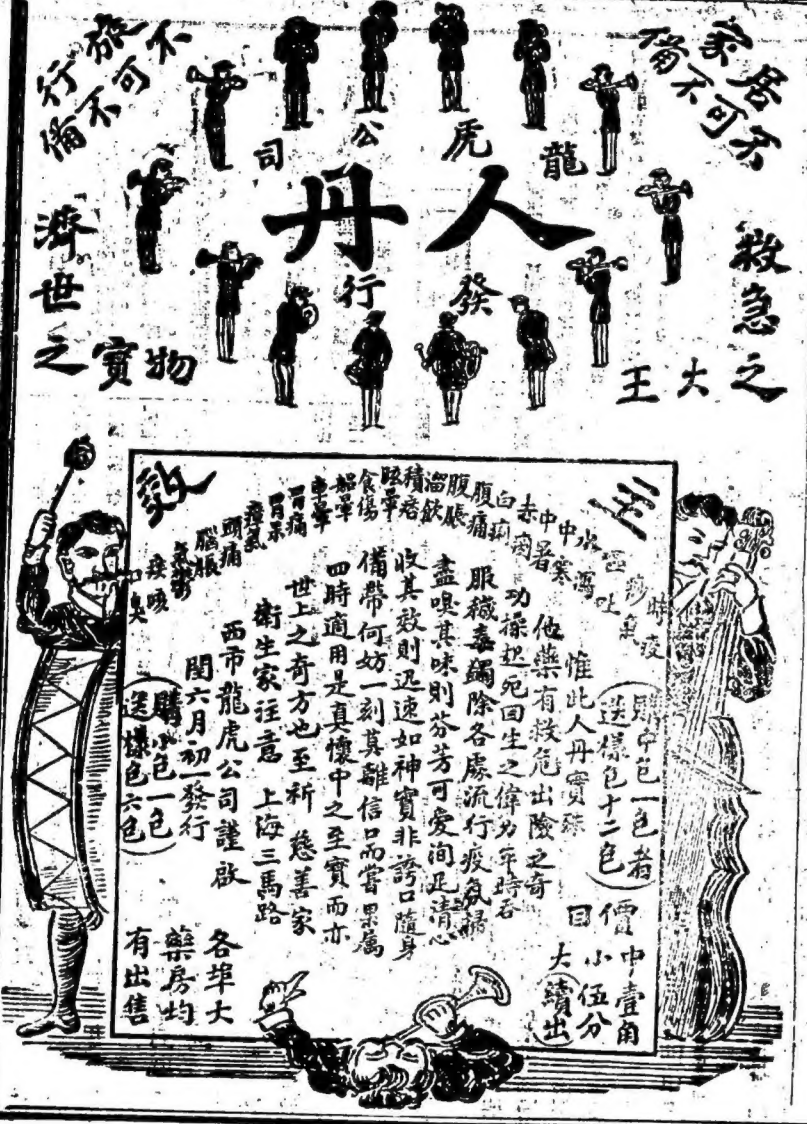 家居
不可不備
旅行
不可不備
龍虎公司
人丹
發行
救急之
大王
濟世
之寶物
至效
時疫
痧氣
霍亂
吐瀉
中寒
中暑
赤痢
白痢
腹痛
腹脹
溜飲
積痞
眩暈
食傷
船暈
車暈
胃痛
胃呆
瘴氣
頭痛
腦脹
痰咳
口臭
購中包一包者
送樣包十二包
惟此人丹實殊
他藥有救危出險之奇
功操起死回生之偉力平時吞
服穢毒蠲除各處流行疫氛掃
盡嗅其味則芬芳可愛洵足清心
收其效則迅速如神實非誇口隨身
備帶何妨一刻莫離信口而嘗果屬
四時適用是真懷中之至寶而亦
世上之奇方也至祈 慈善家
衛生家注意 上海三馬路
西市龍虎公司謹啟
閏六月初一發行
購小包一包
送樣包六包
價目
中壹角
小伍分
大續出
各埠大
藥房均
有出售